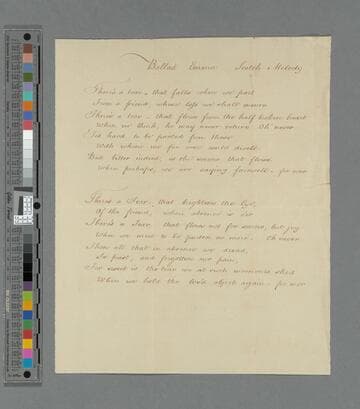 Ballad Scotch Melody
There's a tear that falls when we part
From a friend, whose loss we shall mourn
There's a tear that flows from the half broken heart
When we think, he may never return Oh never
'Tis hard to be parted from those
With whom we for ever could dwell
But bitter indeed, is the sorrow that flows
When perhaps, we are saying farewell for ever
There's a Tear that brightens the Eye,
Of the friend, when absence is o'er
There's a Tear, that flows not for sorrow, but joy
When we meet to be parted no more Oh never
Then all that in absence we dread,
Is past, and forgotten our pain,
For sweet is the tear we at such moments shed
When we hold the lov'd object again for ever